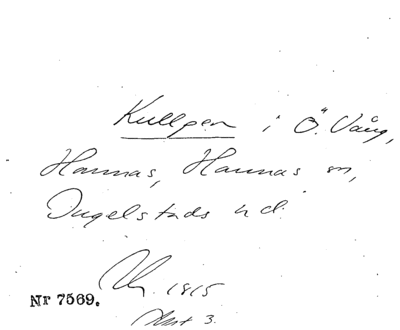 Kullgen i Ö. Vång,
Hannas, Hannas sn,
Ingelstads hd.
1815
Nr 7569.
3.